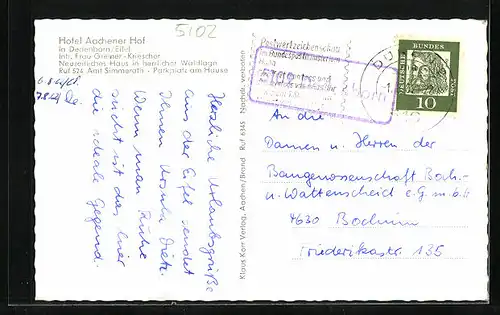 5102
Hotel Aachener Hof
in Dedenborn/Eifel
Inh. Frau Greiner-Kriescher
Neuzeitliches Haus in herrlicher Waldlage
Ruf 524 Amt Simmerath · Parkplatz am Hause
Herzliche Urlaubsgrüße
aus der Eifel sendet
Ihnen Ursula Dietz.
Wenn man Ruhe
sucht ist das hier
die ideale Gegend.
Klaus Kort Verlag, Aachen/Brand Ruf 6345 Nachdr. verboten
Postwertzeichenschau
im Bundespostministerium
DEUTSCHE BUNDESPOST
10
An die
Damen u. Herren der
Baugenossenschaft Boch.-
u. Wattenscheid e.G.m.b.H
4630 Bochum
Friederikastr. 135